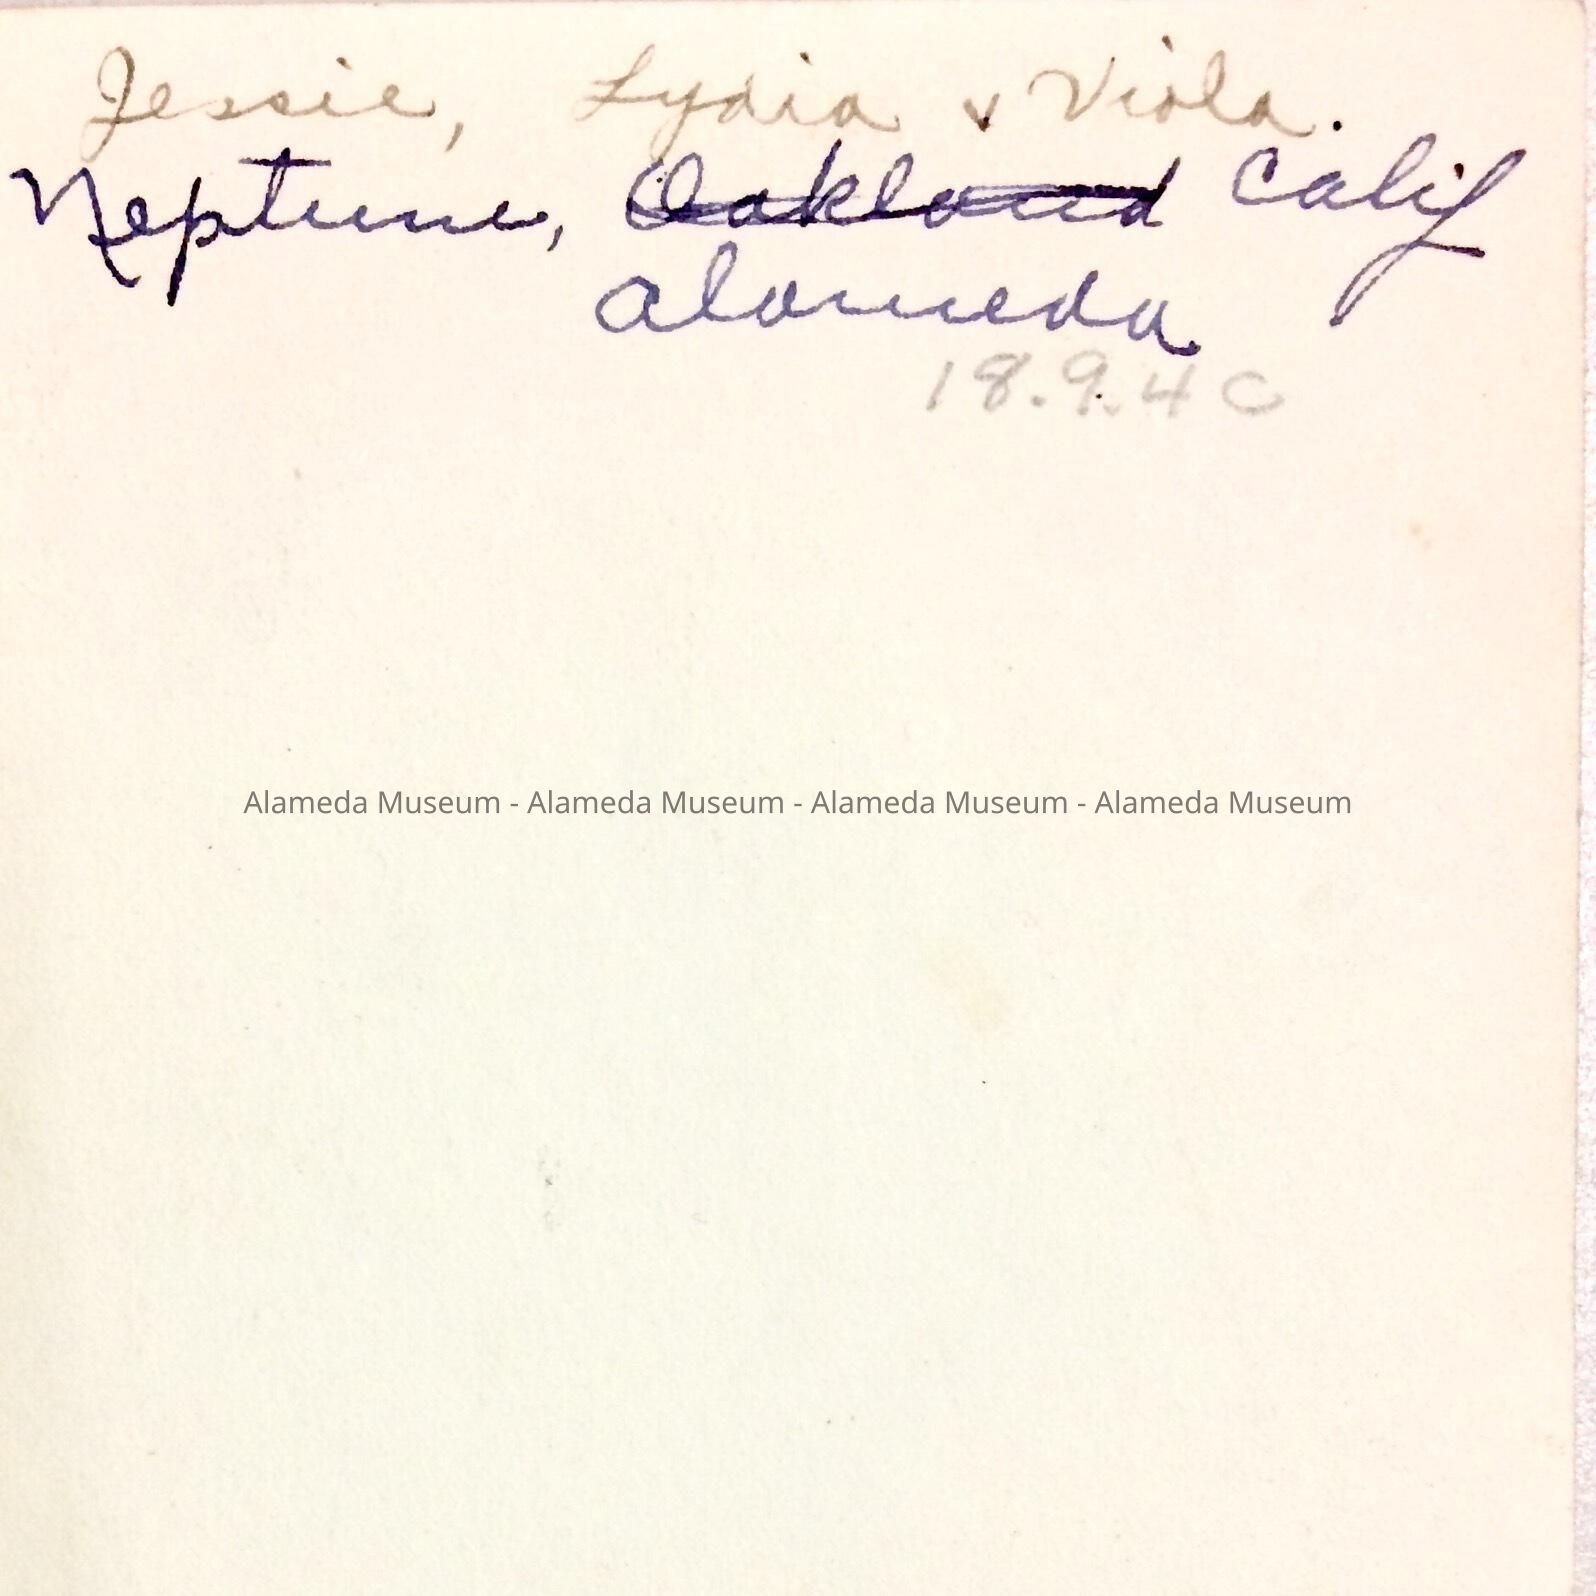 Jessie, Lydia & Viola.
Neptune, Oakland Calif
Alameda
18.9.4C
Alameda Museum - Alameda Museum - Alameda Museum - Alameda Museum